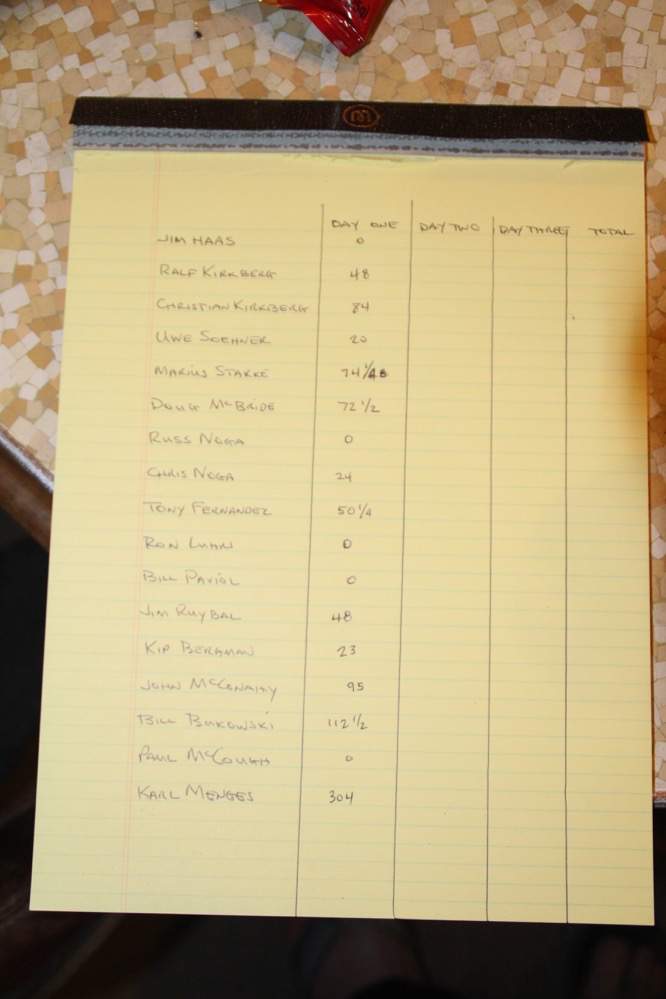 DAY ONE DAY TWO DAY THREE TOTAL
JIM HAAS 0
RALF KIRKBERG 48
CHRISTIAN KIRKBERG 84
UWE SOEHNER 20
MARIUS STARKE
DOUG MCBRIDE 72 1/2
RUSS NOGA 0
CHRIS NOGA 24
TONY FERNANDEZ 50 1/4
RON LUHN 0
BILL PAVIOL 0
JIM RUYBAL 48
KIP BERGMAN 23
JOHN MCCONAHY 95
BILL BUKOWSKI 112 1/2
PAUL MCCOUGH 0
KARL MENGES 304